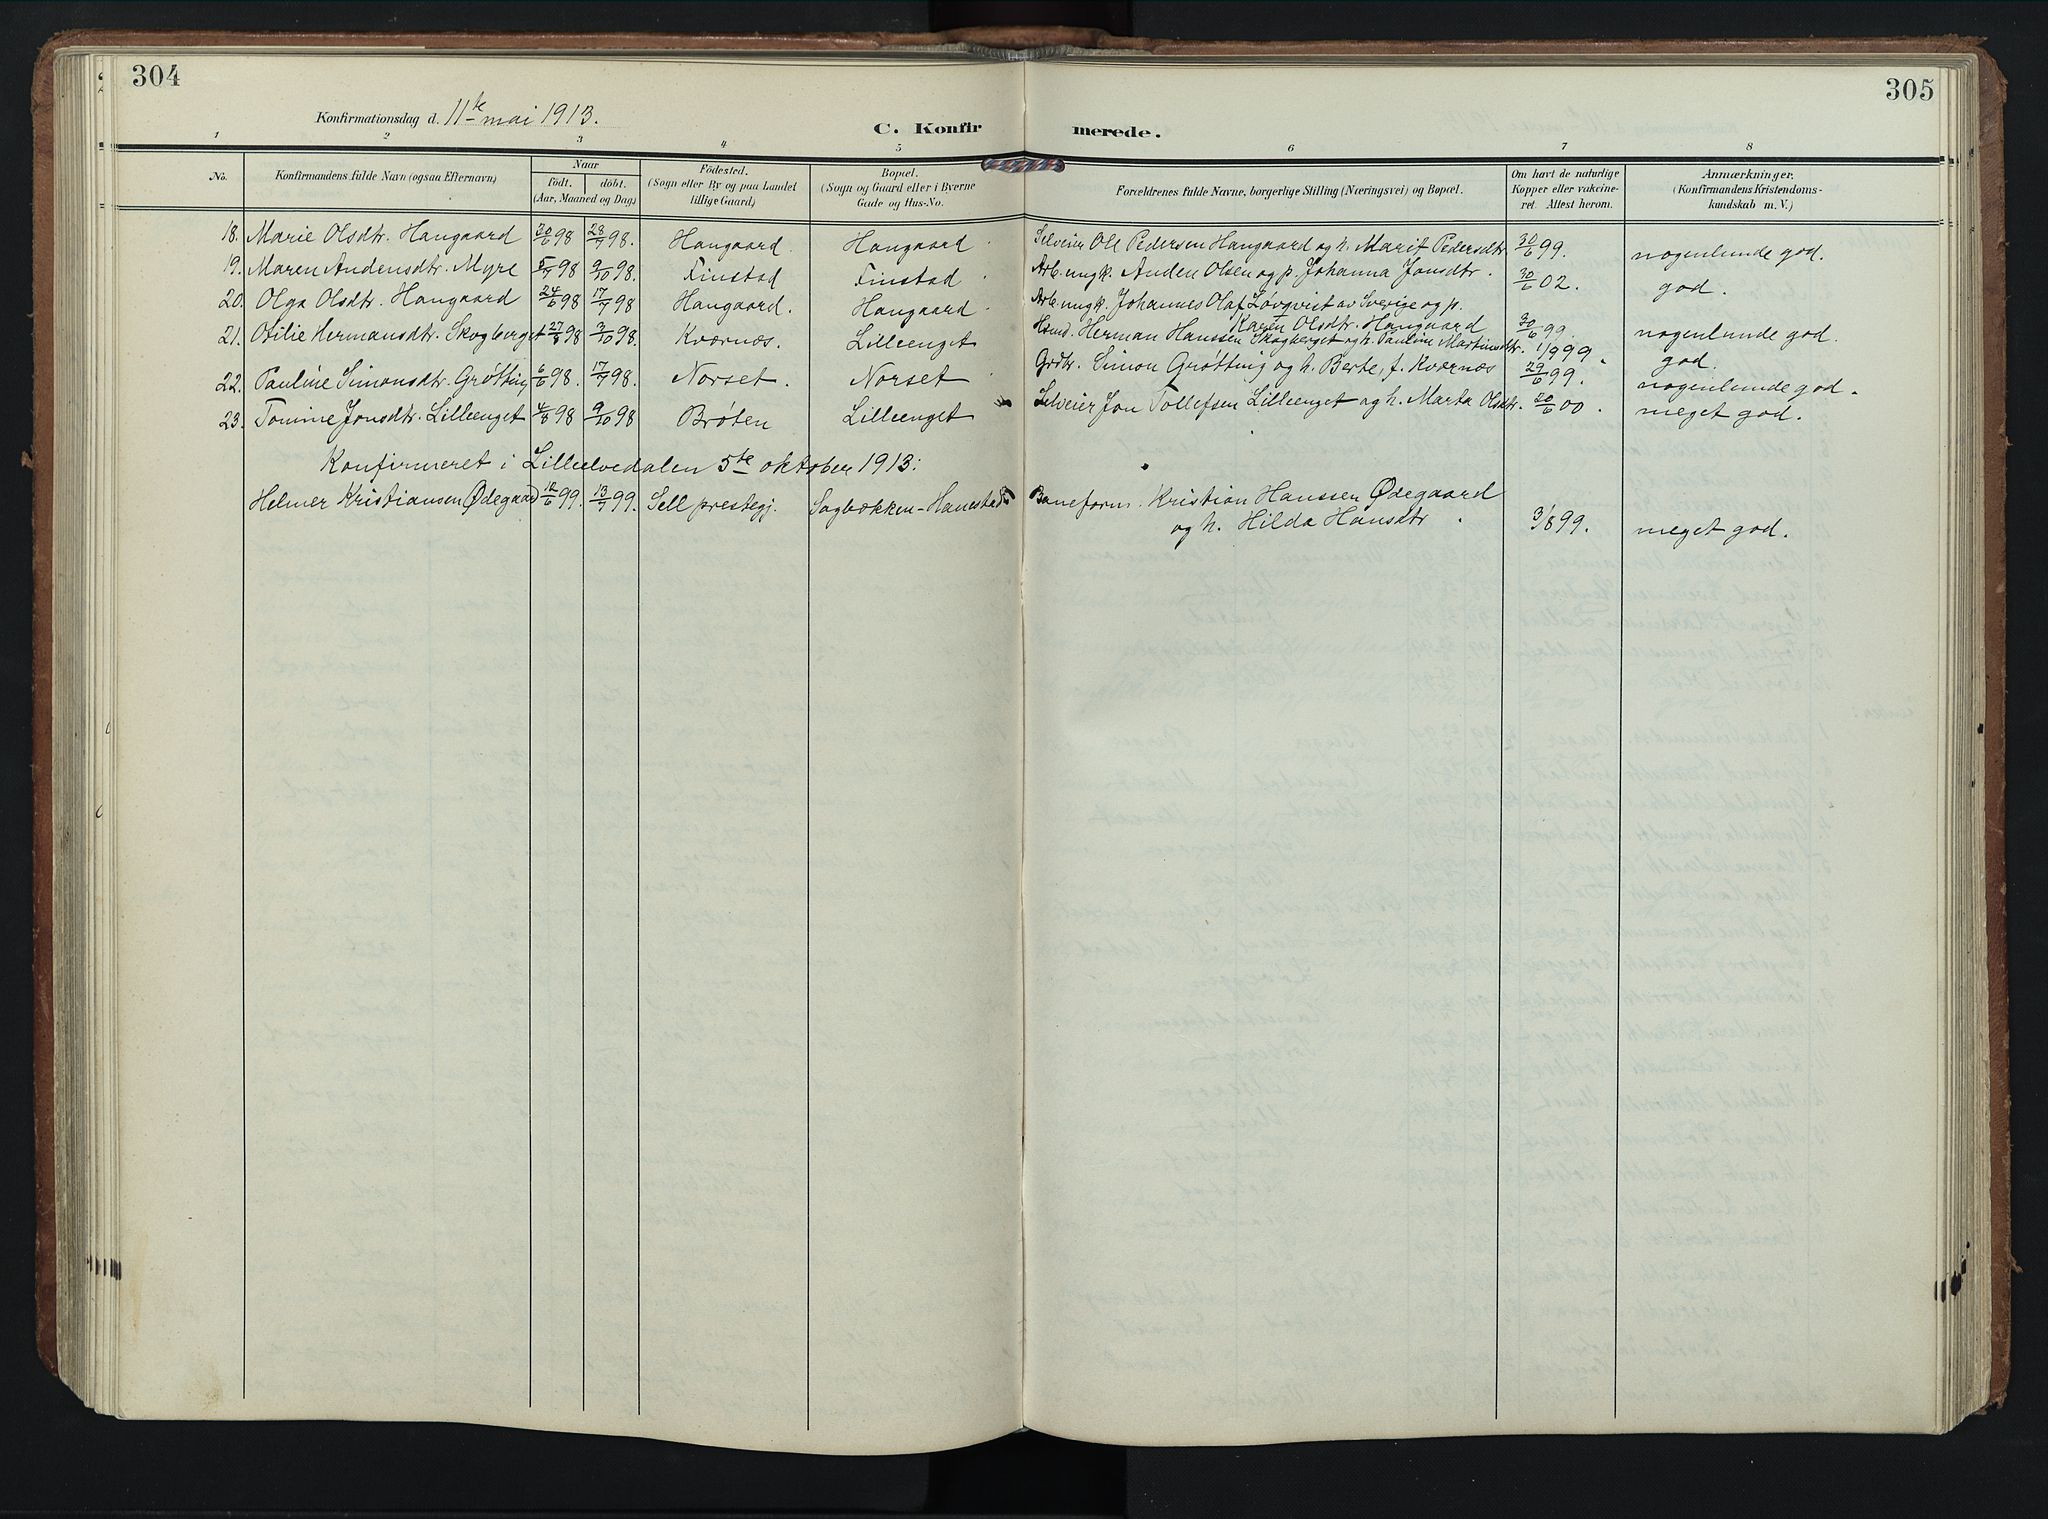 304
305
Konfirmationsdag d. 11te mai 1913.
C. Konfirmerede.
1 2 3 4 5 6 7 8
No. Konfirmandens fulde Navn (ogsaa Efternavn) Naar født. døbt. (Aar, Maaned og Dag) Fødested. (Sogn eller By og paa Landet tillige Gaard) Bopæl. (Sogn og Gaard eller i Byerne Gade og Hus-No. Forældrenes fulde Navne, borgerlige Stilling (Næringsvei) og Bopæl. Om havt de naturlige Kopper eller vakcineret. Attest herom. Anmærkninger. (Konfirmandens Kristendomskundskab m. V.)
18. Marie Olsdtr. Haugaard 30/6 98 28/9 98. Haugaard. Haugaard. Selveier Ole Pedersen Haugaard og h. Marit Pedersdtr. 30/6 99. nogenlunde god.
19. Maren Andensdtr. Myre 5/7 98 9/10 98. Finstad Finstad. Arb. ungk. Anden Olsen og p. Johanna Jonsdtr. 30/6 02. god.
20. Olga Olsdtr. Haugaard 24/6 98 17/7 98 Haugaard. Haugaard. Arb. ungk. Johannes Olaf Løvqvist av Sverige og p.
Karen Olsdtr. Haugaard 30/6 99. nogenlunde god.
21. Otilie Hermansdtr. Skogberget 27/8 98 2/10 98. Kværnæs. Lilleenget Husmd. Herman Hanssen Skogberget og h. Pauline Martinsdtr. 1/9 99. god.
22. Pauline Simonsdtr. Grøtting 6/6 98. 17/7 98. Norset. Norset Grdbr. Simon Grøtting og h. Berte, f. Kværnæs 29/6 99. nogenlunde god.
23. Tomine Jonsdtr. Lilleenget 4/8 98 9/10 98 Brøten Lilleenget Selveier Jon Tollefsen Lilleenget og h. Marta Olsdtr. 20/6 00. meget god.
Konfirmeret i Lilleelvedalen 5te oktober 1913:
Helmer Kristiansen Ødegaard 12/6 99. 13/7 99. Sell prestegj. Sagbækken-Hanestad Baneform. Kristian Hanssen Ødegaard
og h. Hilda Hansdtr. 3/8 99. meget god.